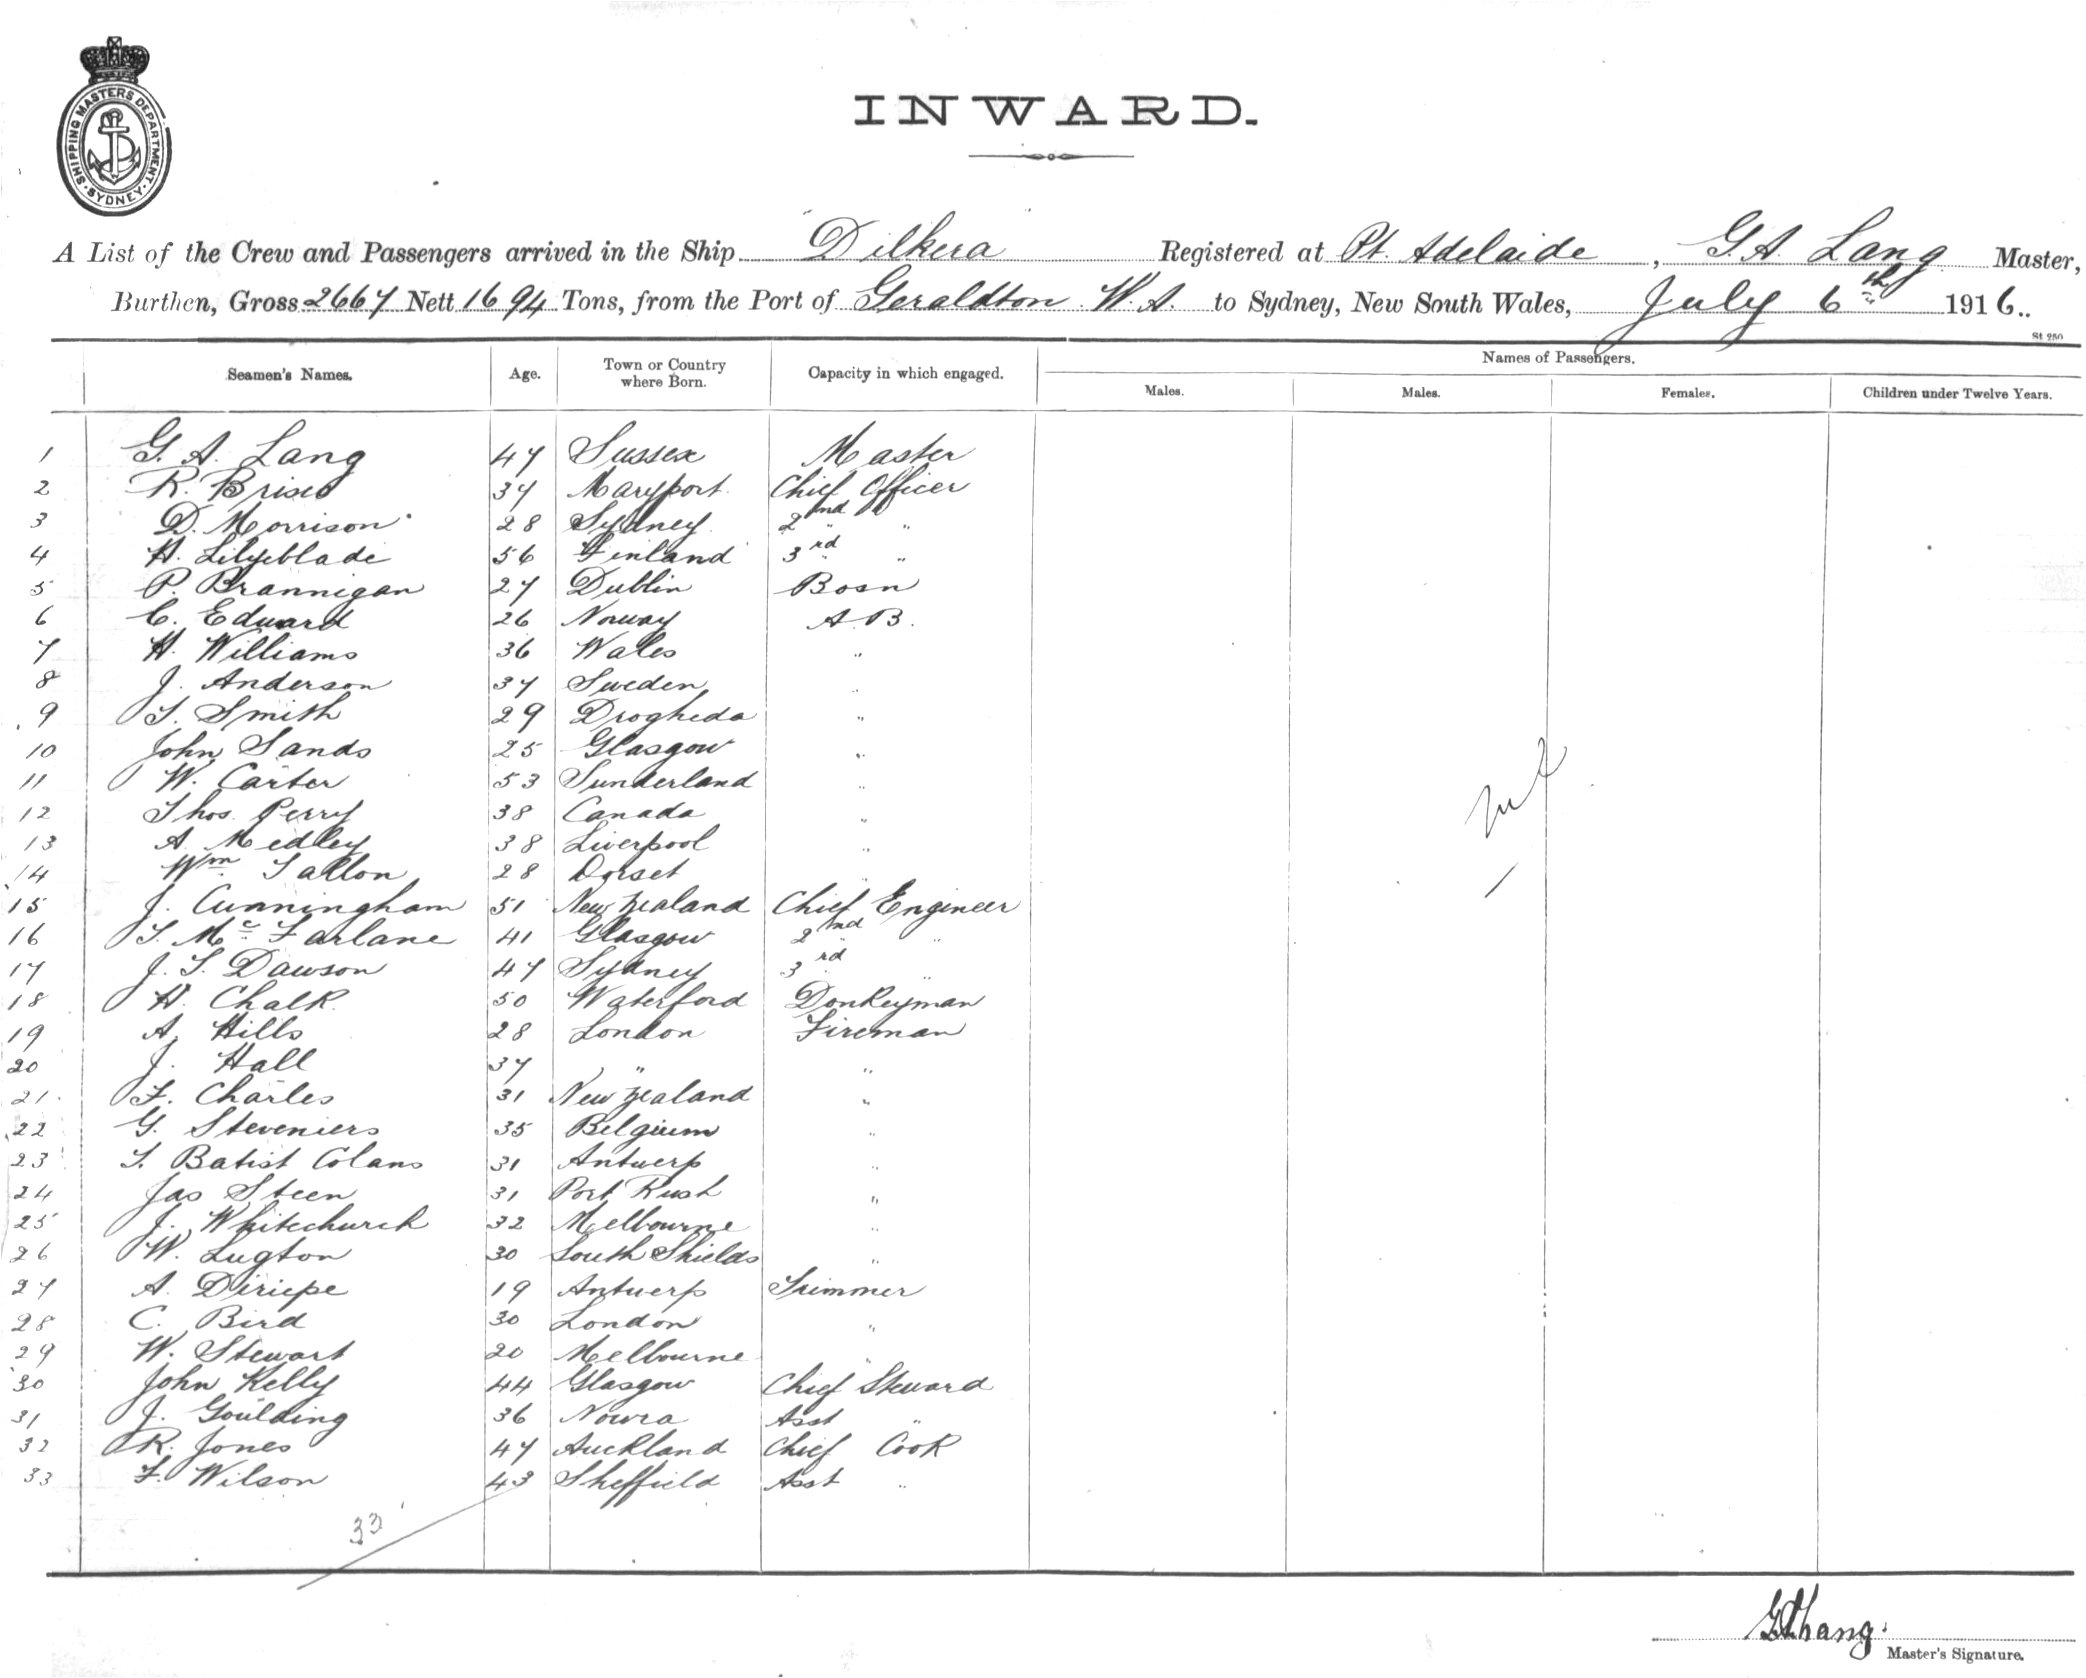 SHIPPING MASTERS DEPARTMENT
· SYDNEY ·
INWARD.
A List of the Crew and Passengers arrived in the Ship Dilkera Registered at Pt. Adelaide, G. A. Lang Master,
Burthen, Gross 2667 Nett 1694 Tons, from the Port of Geraldton W. A. to Sydney, New South Wales, July 6th 1916.
St 250
Seamen's Names. Age. Town or Country where Born. Capacity in which engaged. Names of Passengers.
Males. Males. Females. Children under Twelve Years.
1 G. A. Lang 47 Sussex Master
2 R. Brisco 37 Maryport Chief Officer
3 D. Morrison 28 Sydney 2nd "
4 H. Lilyeblade 56 Finland 3rd "
5 P. Brannigan 27 Dublin Bosn
6 C. Edward 26 Norway A.B.
7 H. Williams 36 Wales "
8 J. Anderson 37 Sweden "
9 T. Smith 29 Drogheda "
10 John Sands 25 Glasgow "
11 W. Carter 53 Sunderland "
12 Thos. Perry 38 Canada "
13 A. Medley 38 Liverpool "
14 Wm. Tallon 28 Dorset "
15 J. Cunningham 51 New Zealand Chief Engineer
16 T. Mc Farlane 41 Glasgow 2nd "
17 J. T. Dawson 47 Sydney 3rd "
18 H. Chalk 50 Waterford Donkeyman
19 A. Hills 28 London Fireman
20 J. Hall 37 " "
21 F. Charles 31 New Zealand "
22 G. Steveniers 35 Belgium "
23 T. Batist Colans 31 Antwerp "
24 Jas Steen 31 Port Rush "
25 J. Whitechurch 32 Melbourne "
26 W. Lugton 30 South Shields "
27 A. Diriepe 19 Antwerp Trimmer
28 C. Bird 30 London "
29 W. Stewart 20 Melbourne "
30 John Kelly 44 Glasgow Chief Steward
31 J. Goulding 36 Nowra Asst "
32 R. Jones 47 Auckland Chief Cook
33 F. Wilson 43 Sheffield Asst "
33
G A Lang.
Master's Signature.